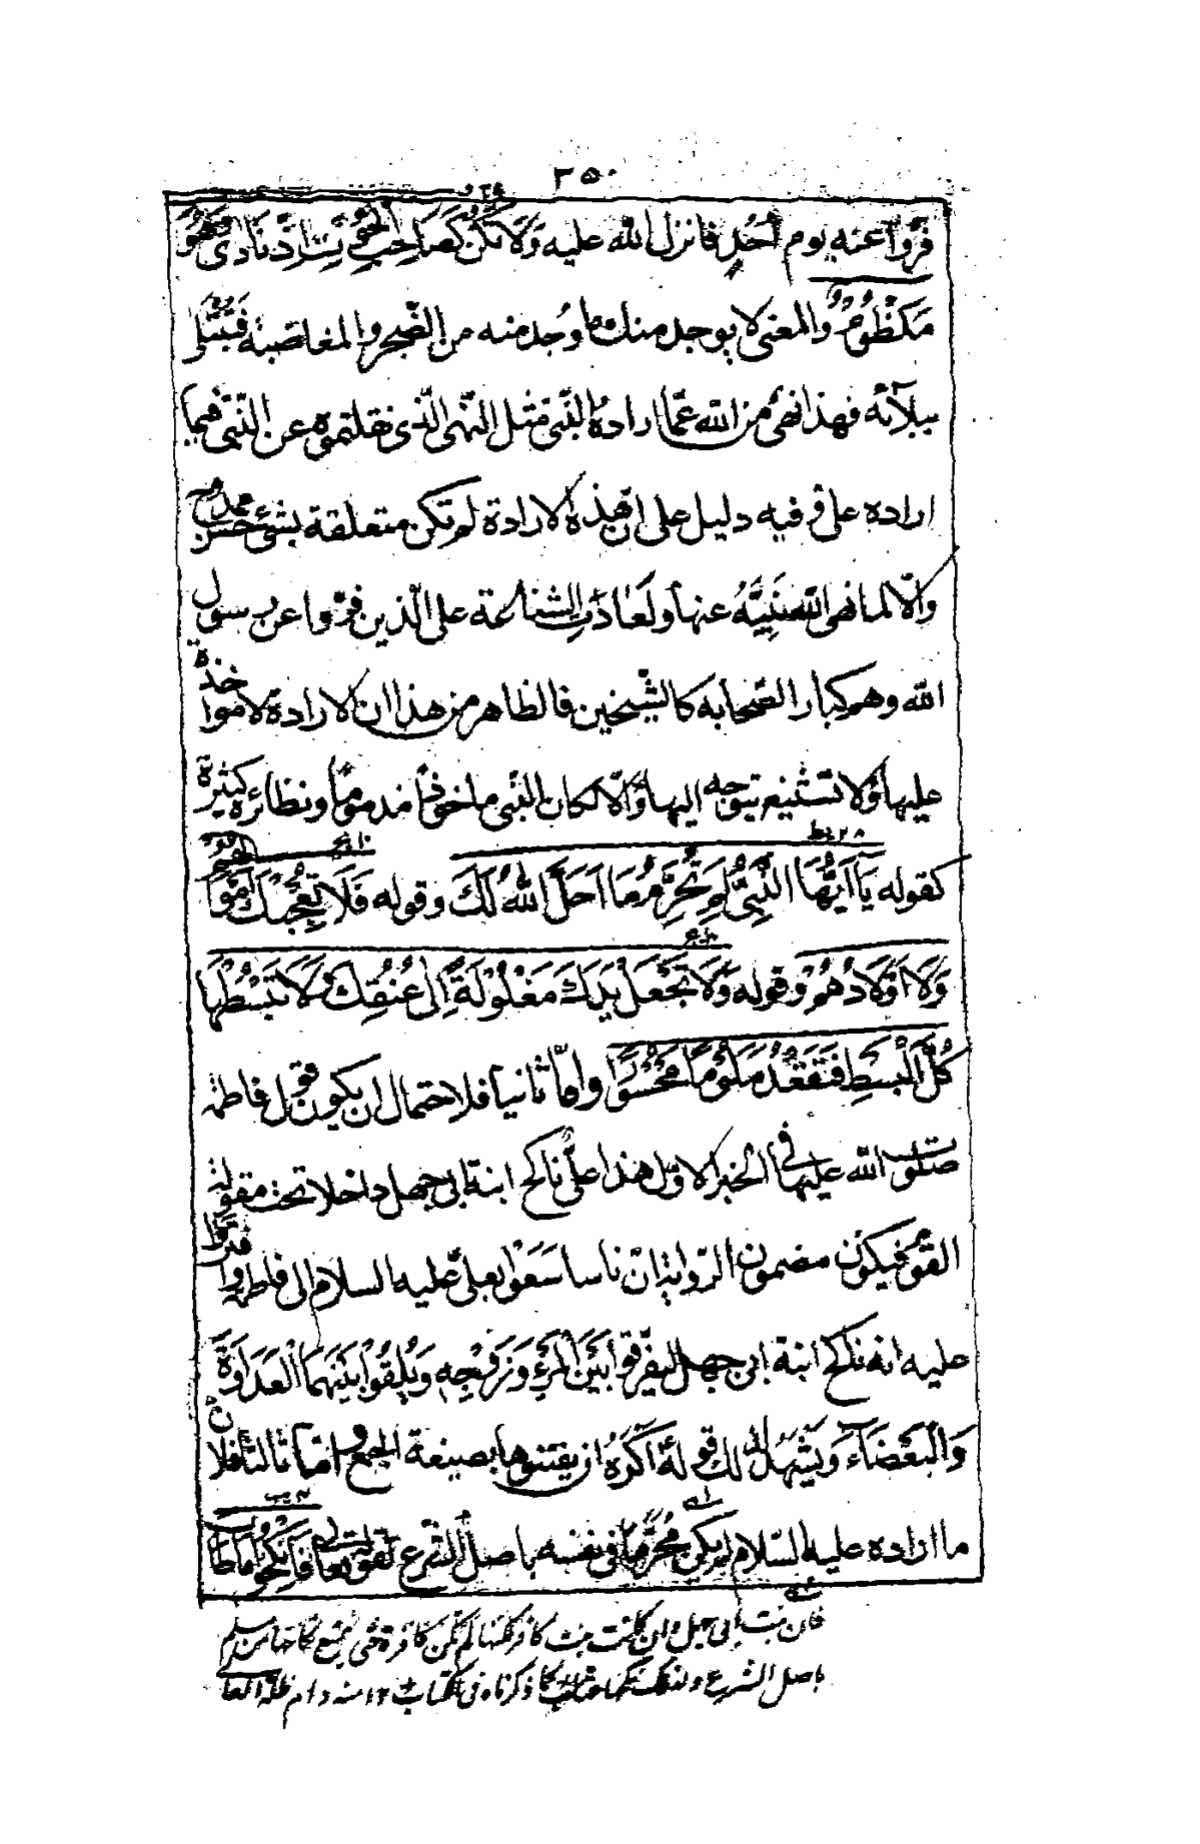 ٣٥٠
فرّوا عنه يوم أُحُدٍ فانزل الله عليه وَلَا تَكُنْ كَصَاحِبِ الْحُوْتِ اِذْ نَادٰى وَهُوَ
مَكْظُوْمٌ والمعنى لا يوجد منك ما وُجد منه من الضّجر والمغاضبة فتُبْتَلى
ببلآئه فهذا نهىٌ من الله عمّا اراده النّبى مثل النّهى الّذى نقلتموه عن النّبى فيما
اراده على وفيه دليل على انّ هذه الارادة لم تكن متعلقة بشئ حسن ممدوح
والّا لما نهى الله نَبِيَّهُ عنها ولَعَادَتِ الشناعة على الّذين فرّوا عن رسول
الله وهم كبار الصّحابة كالشّيخين فالظاهر من هذا ان الارادة لا مواخذة
عليها ولا تشنيع يتوجه اليها والّا لكان النّبى ماخوذًا مذمومًا ونظائره كثيرة
كقوله يَآ اَيُّهَا النَّبِىُّ لِمَ تُحَرِّمُ مَا اَحَلَّ اللهُ لَكَ وقوله فَلَا تُعْجِبْكَ اَمْوَالُهُمْ
وَلَا اَوْلَادُهُمْ وقوله وَلَا تَجْعَلْ يَدَكَ مَغْلُوْلَةً اِلٰى عُنُقِكَ وَلَا تَبْسُطْهَا
كُلَّ الْبَسْطِ فَتَقْعُدَ مَلُوْمًا مَحْسُوْرًا وامّا ثانيا فلاحتمال ان يكون قول فاطمة
صلوات الله عليها فى الخبر الاوّل هذا علىٌّ ناكح ابنة ابى جهل داخلا تحت مقولة
القوم فيكون مضمون الرّواية انّ ناسا سَعَوْا بعلىّ عليه السلام الى فاطمة وافتروا
عليه انه ناكح ابنة ابى جهل ليفرّقوا بَيْنَ الْمَرْءِ وَزَوْجِهِ وَيُلْقُوْا بَيْنَهُمَا الْعَدَاوَةَ
وَالْبَغْضَآءَ وَيَشْهَدُ لذلك قوله اَكْرَهُ ان يفتنوها بصيغة الجمع وامّا ثالثا فلانّ
ما اراده عليه السّلام لم يكن مُحَرَّمًا فى نفسه باصل الشّرع لقوله تعالى فَانْكِحُوْا مَا طَابَ
فان بنت ابى جهل وان كانت بنت كافر لكنها لم تكن كافرة حتى يمتنع نكاحها من مسلم
باصل الشرع ولذلك نكحها عتاب كما ذكرناه فى الكتاب ١٢ منه دام ظله العالى